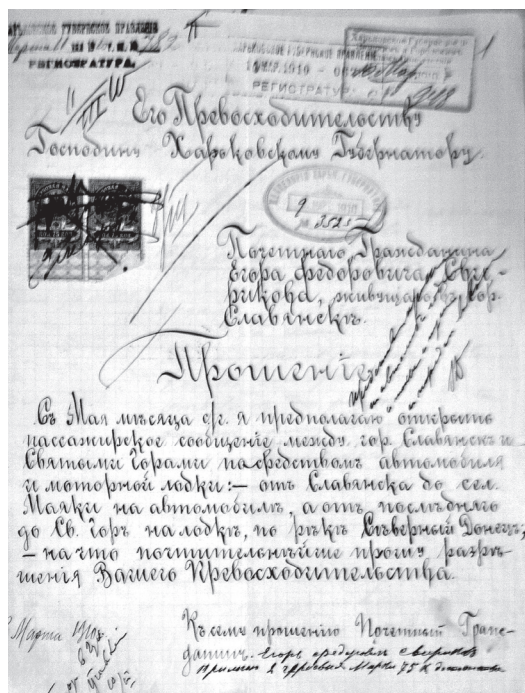 ХАРЬКОВСКОЕ ГУБЕРНСКОЕ ПРАВЛЕНІЕ
РЕГИСТРАТУРА.
ХАРЬКОВСКОЕ ГУБЕРНСКОЕ ПРАВЛЕНІЕ
МАР. 1910
РЕГИСТРАТУРА
1
Его Превосходительству
Господину Харьковскому Губернатору.
9
2525
Почетнаго Гражданина
Егора Федоровича Сви-
рикова, живущаго въ гор.
Славянскѣ.
Прошеніе
Съ Мая мѣсяца с/г. я предполагаю открыть
пассажирское сообщеніе между гор. Славянскъ и
Святыми Горами посредствомъ автомобиля
и моторной лодки: — отъ Славянска до сел.
Маяки на автомобилѣ, а отъ послѣдняго
до Св. Горъ на лодкѣ, по рѣкѣ Сѣверный Донецъ,
— на что почтительнѣйше прошу разрѣ-
шенія Вашего Превосходительства.
Марта 1910г.
Къ сему прошенію Почетный Граж-
данинъ Егоръ Федоровъ Свириковъ